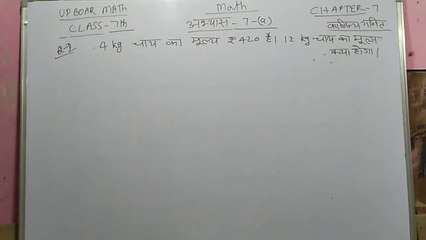 UP BOAR MATH Math CHAPTER-7
CLASS-7th अभ्यास-7-(a) वाणिज्य गणित
Q-1 4 kg चाय का मूल्य ₹ 420 है। 12 kg चाय का मूल्य
क्या होगा।